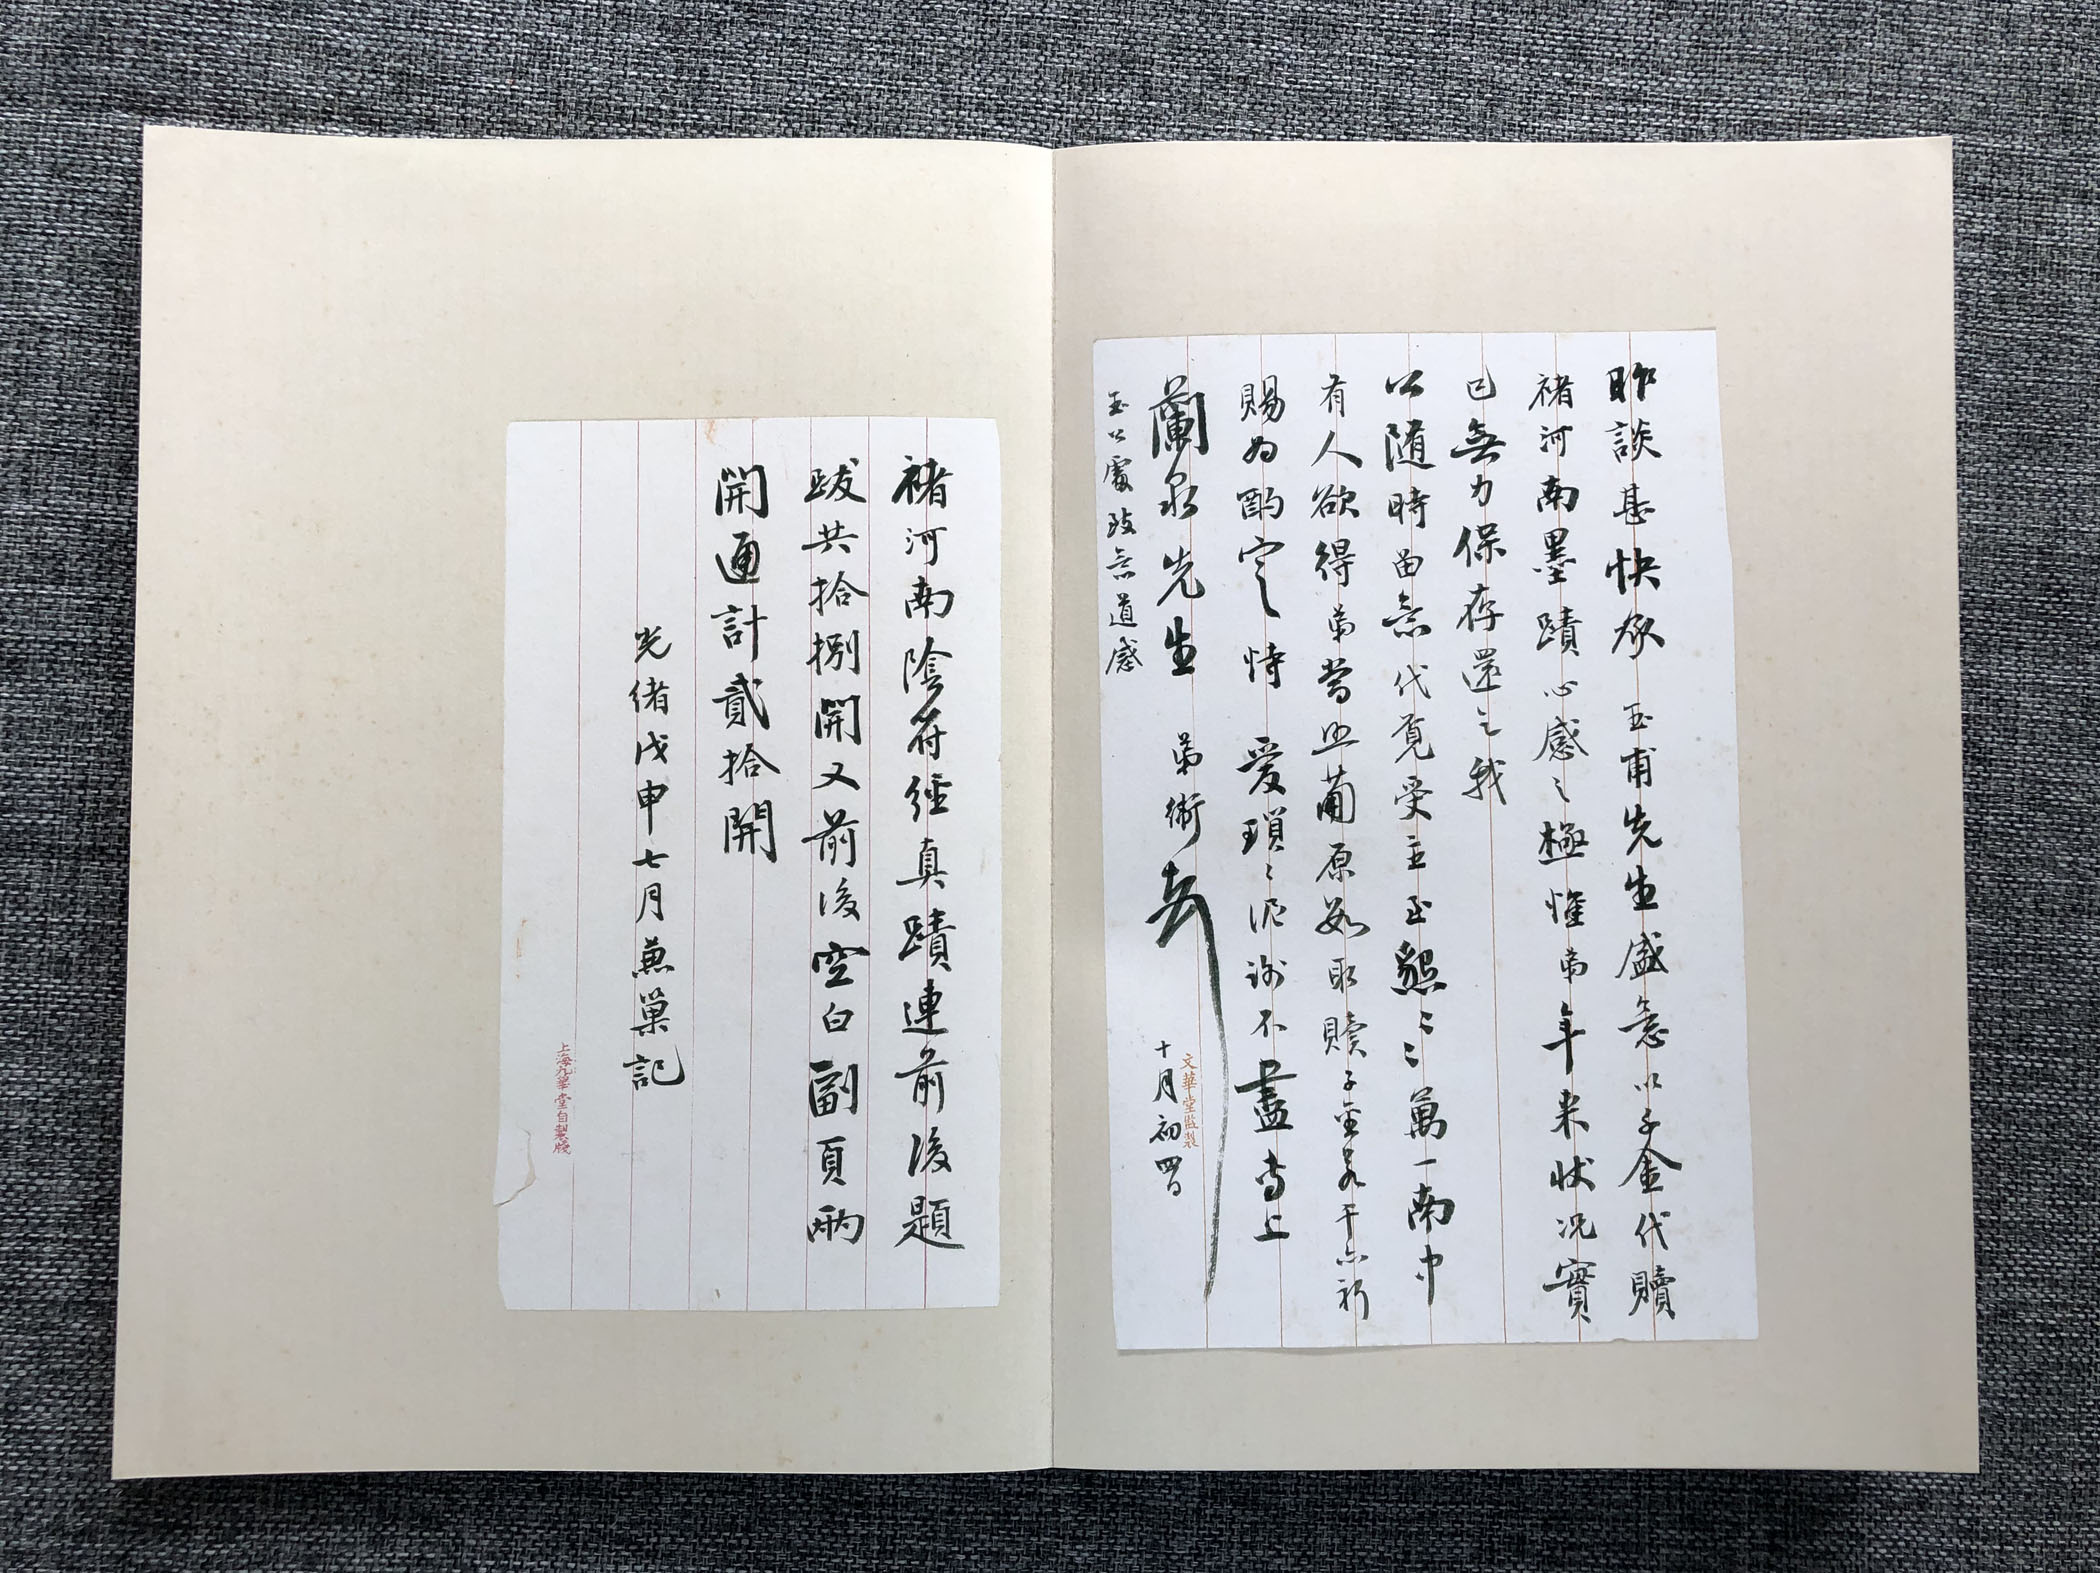 昨談甚快承 玉甫先生盛意以子金代贖
褚河南墨蹟心感之極惟弟年來狀況實
已無力保存還之我
公隨時留意代覓受主至懇々々萬一南中
有人欲得弟當照蘭原數取贖子金若干亦祈
賜為酌定恃 愛瑣瑣泥謝不盡專上
蘭泉先生 弟衡
十月初四日
玉公處致意道感
文華堂監製
褚河南陰符經真蹟連前後題
跋共拾捌開又前後空白副頁兩
開通計貳拾開
光緒戊申七月燕巢記
上海九華堂自製牋